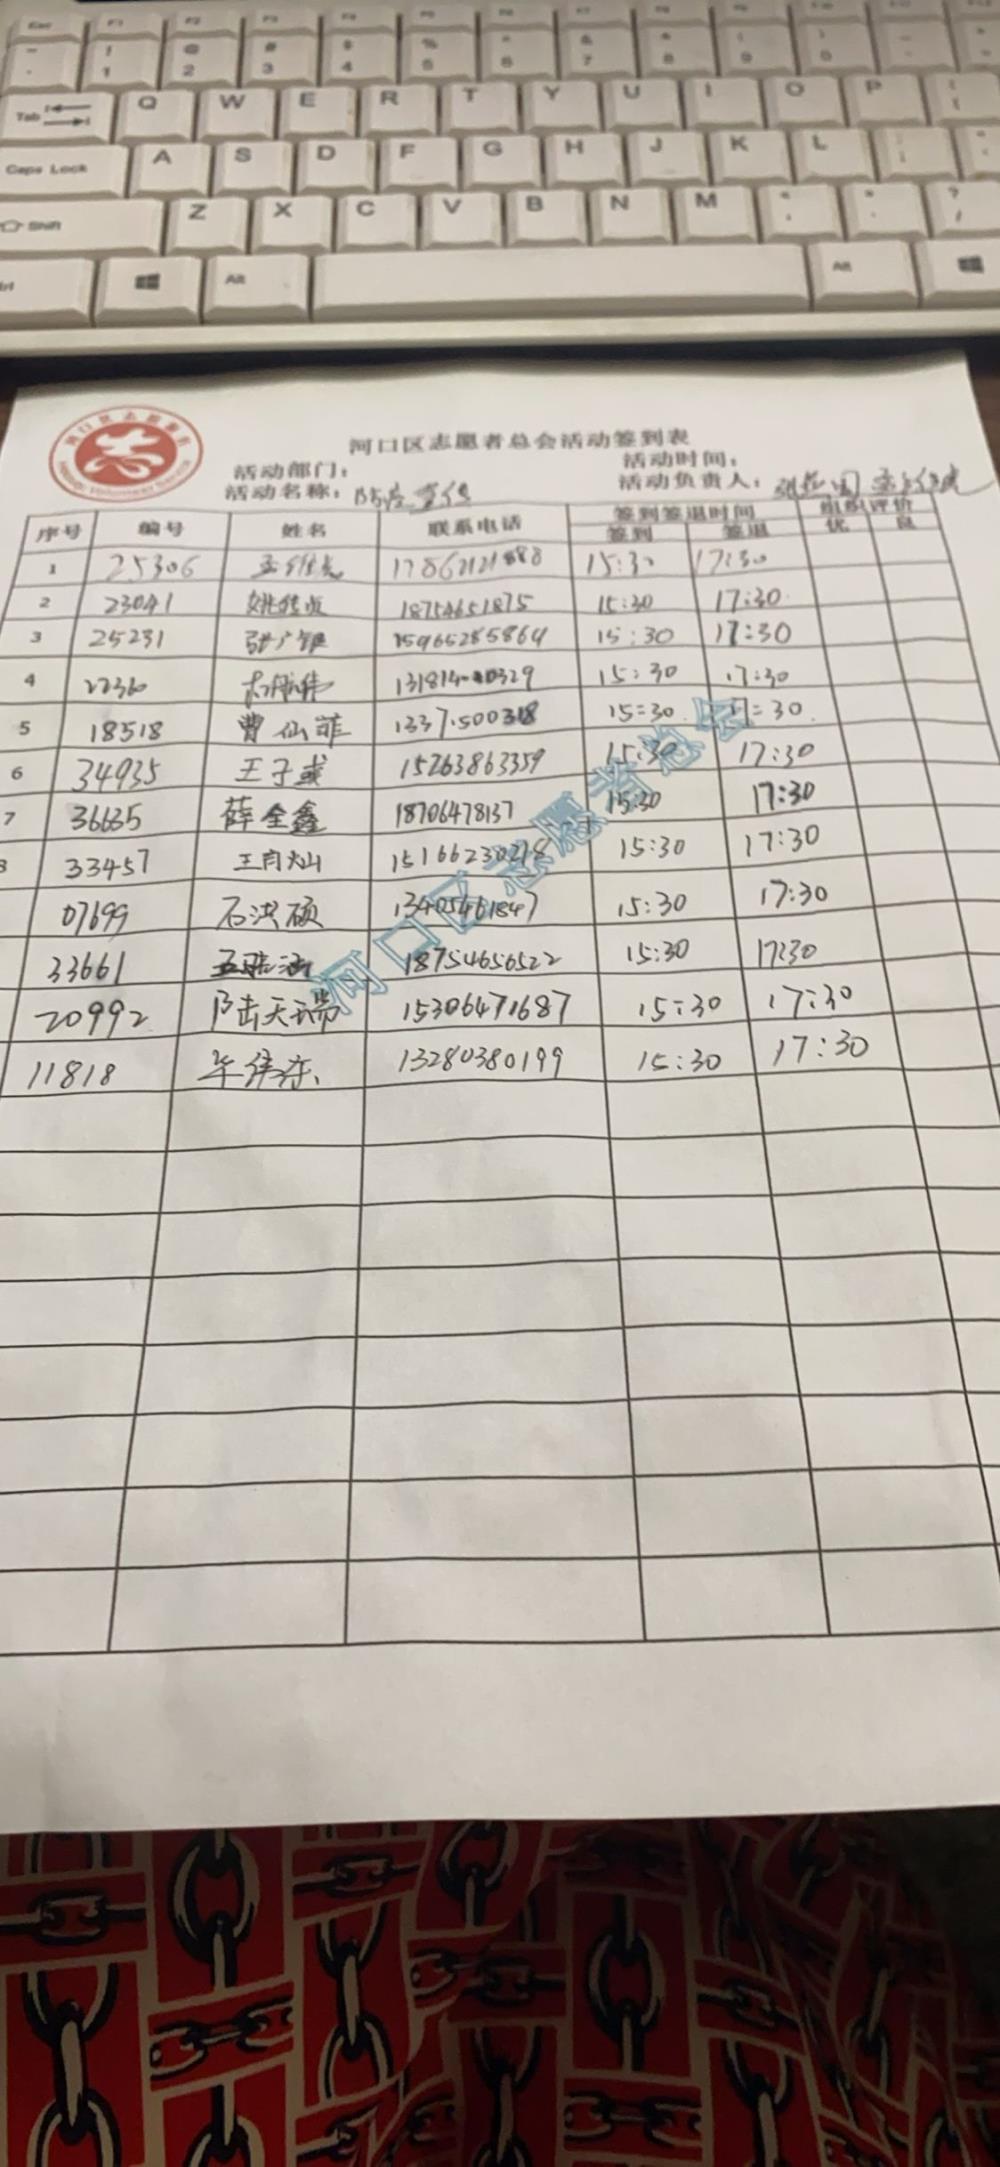 Esc F1 F2 F3 F4 F5 F6 F7 F8
! @ # $ % ^ & * ( )
1 2 3 4 5 6 7 8 9 0
Tab Q W E R T Y U I O P
Caps Lock A S D F G H J K L
Shift Z X C V B N M
Alt Alt
河口区志愿者总会活动签到表
活动部门： 活动时间：
活动名称：防疫宣传 活动负责人：
序号 编号 姓名 联系电话 签到签退时间 组织评价
签到 签退 优 良
1 25306 17862121888 15:30 17:30
2 23041 18754651875 15:30 17:30
3 25231 张广银 15965285864 15:30 17:30
4 22360 15:30 17:30
5 18518 曹仙菲 15:30 17:30
6 34935 王子彧 15263863359 15:30 17:30
7 36635 薛全鑫 18706478137 15:30 17:30
8 33457 王肖灿 15166230218 15:30 17:30
07699 石洪硕 13405461847 15:30 17:30
33661 18754656522 15:30 17:30
20992 陆天瑞 15306471687 15:30 17:30
11818 毕伟东 13280380199 15:30 17:30
河口区志愿者总会